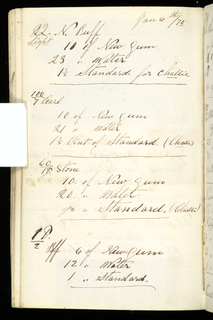 Jan 6th /73
22. N. Buff
Light
10 of New Gum
23 " Water
1½ Standard for Challie
100
7 Pearl
10 of New Gum
21 " Water
1½ Pint of Standard (Challie)
60
18 Stone
10 of New Gum
20 " Water
" Standard (Challie)
18.
2 Off 6 of New Gum
12 " Water
1 " Standard.